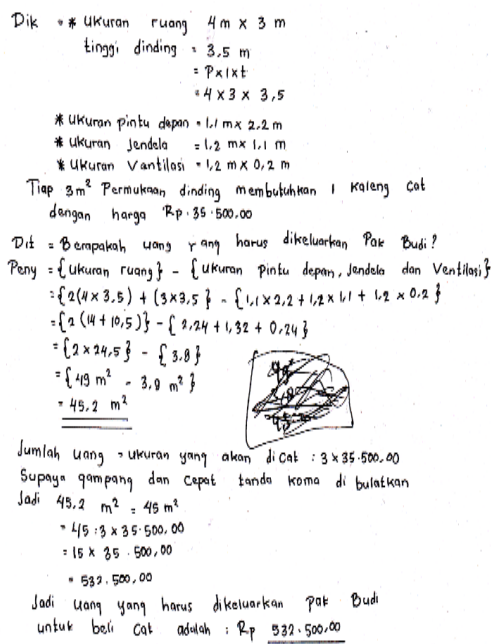 Dik = * Ukuran ruang 4 m x 3 m
tinggi dinding = 3,5 m
= P x l x t
= 4 x 3 x 3,5
* Ukuran pintu depan = 1,1 m x 2,2 m
* Ukuran Jendela = 1,2 m x 1,1 m
* Ukuran Vantilasi = 1,2 m x 0,2 m
Tiap 3m² Permukaan dinding membutuhkan 1 Kaleng Cat
dengan harga Rp. 35.500,00
Dit = Berapakah uang yang harus dikeluarkan Pak Budi?
Peny = {Ukuran ruang} - {Ukuran Pintu depan, Jendela dan Ventilasi}
= {2(4 x 3,5) + (3 x 3,5} - {1,1 x 2,2 + 1,2 x 1,1 + 1,2 x 0,2}
= {2 (14 + 10,5)} - {2,24 + 1,32 + 0,24}
= {2 x 24,5} - {3,8}
= {49 m² - 3,8 m²}
= 45,2 m²
Jumlah uang = ukuran yang akan di cat : 3 x 35.500,00
Supaya gampang dan Cepat tanda koma di bulatkan
Jadi 45,2 m² = 45 m²
= 45 : 3 x 35.500,00
= 15 x 35.500,00
= 532.500,00
Jadi uang yang harus dikeluarkan Pak Budi
untuk beli Cat adalah : Rp 532.500,00